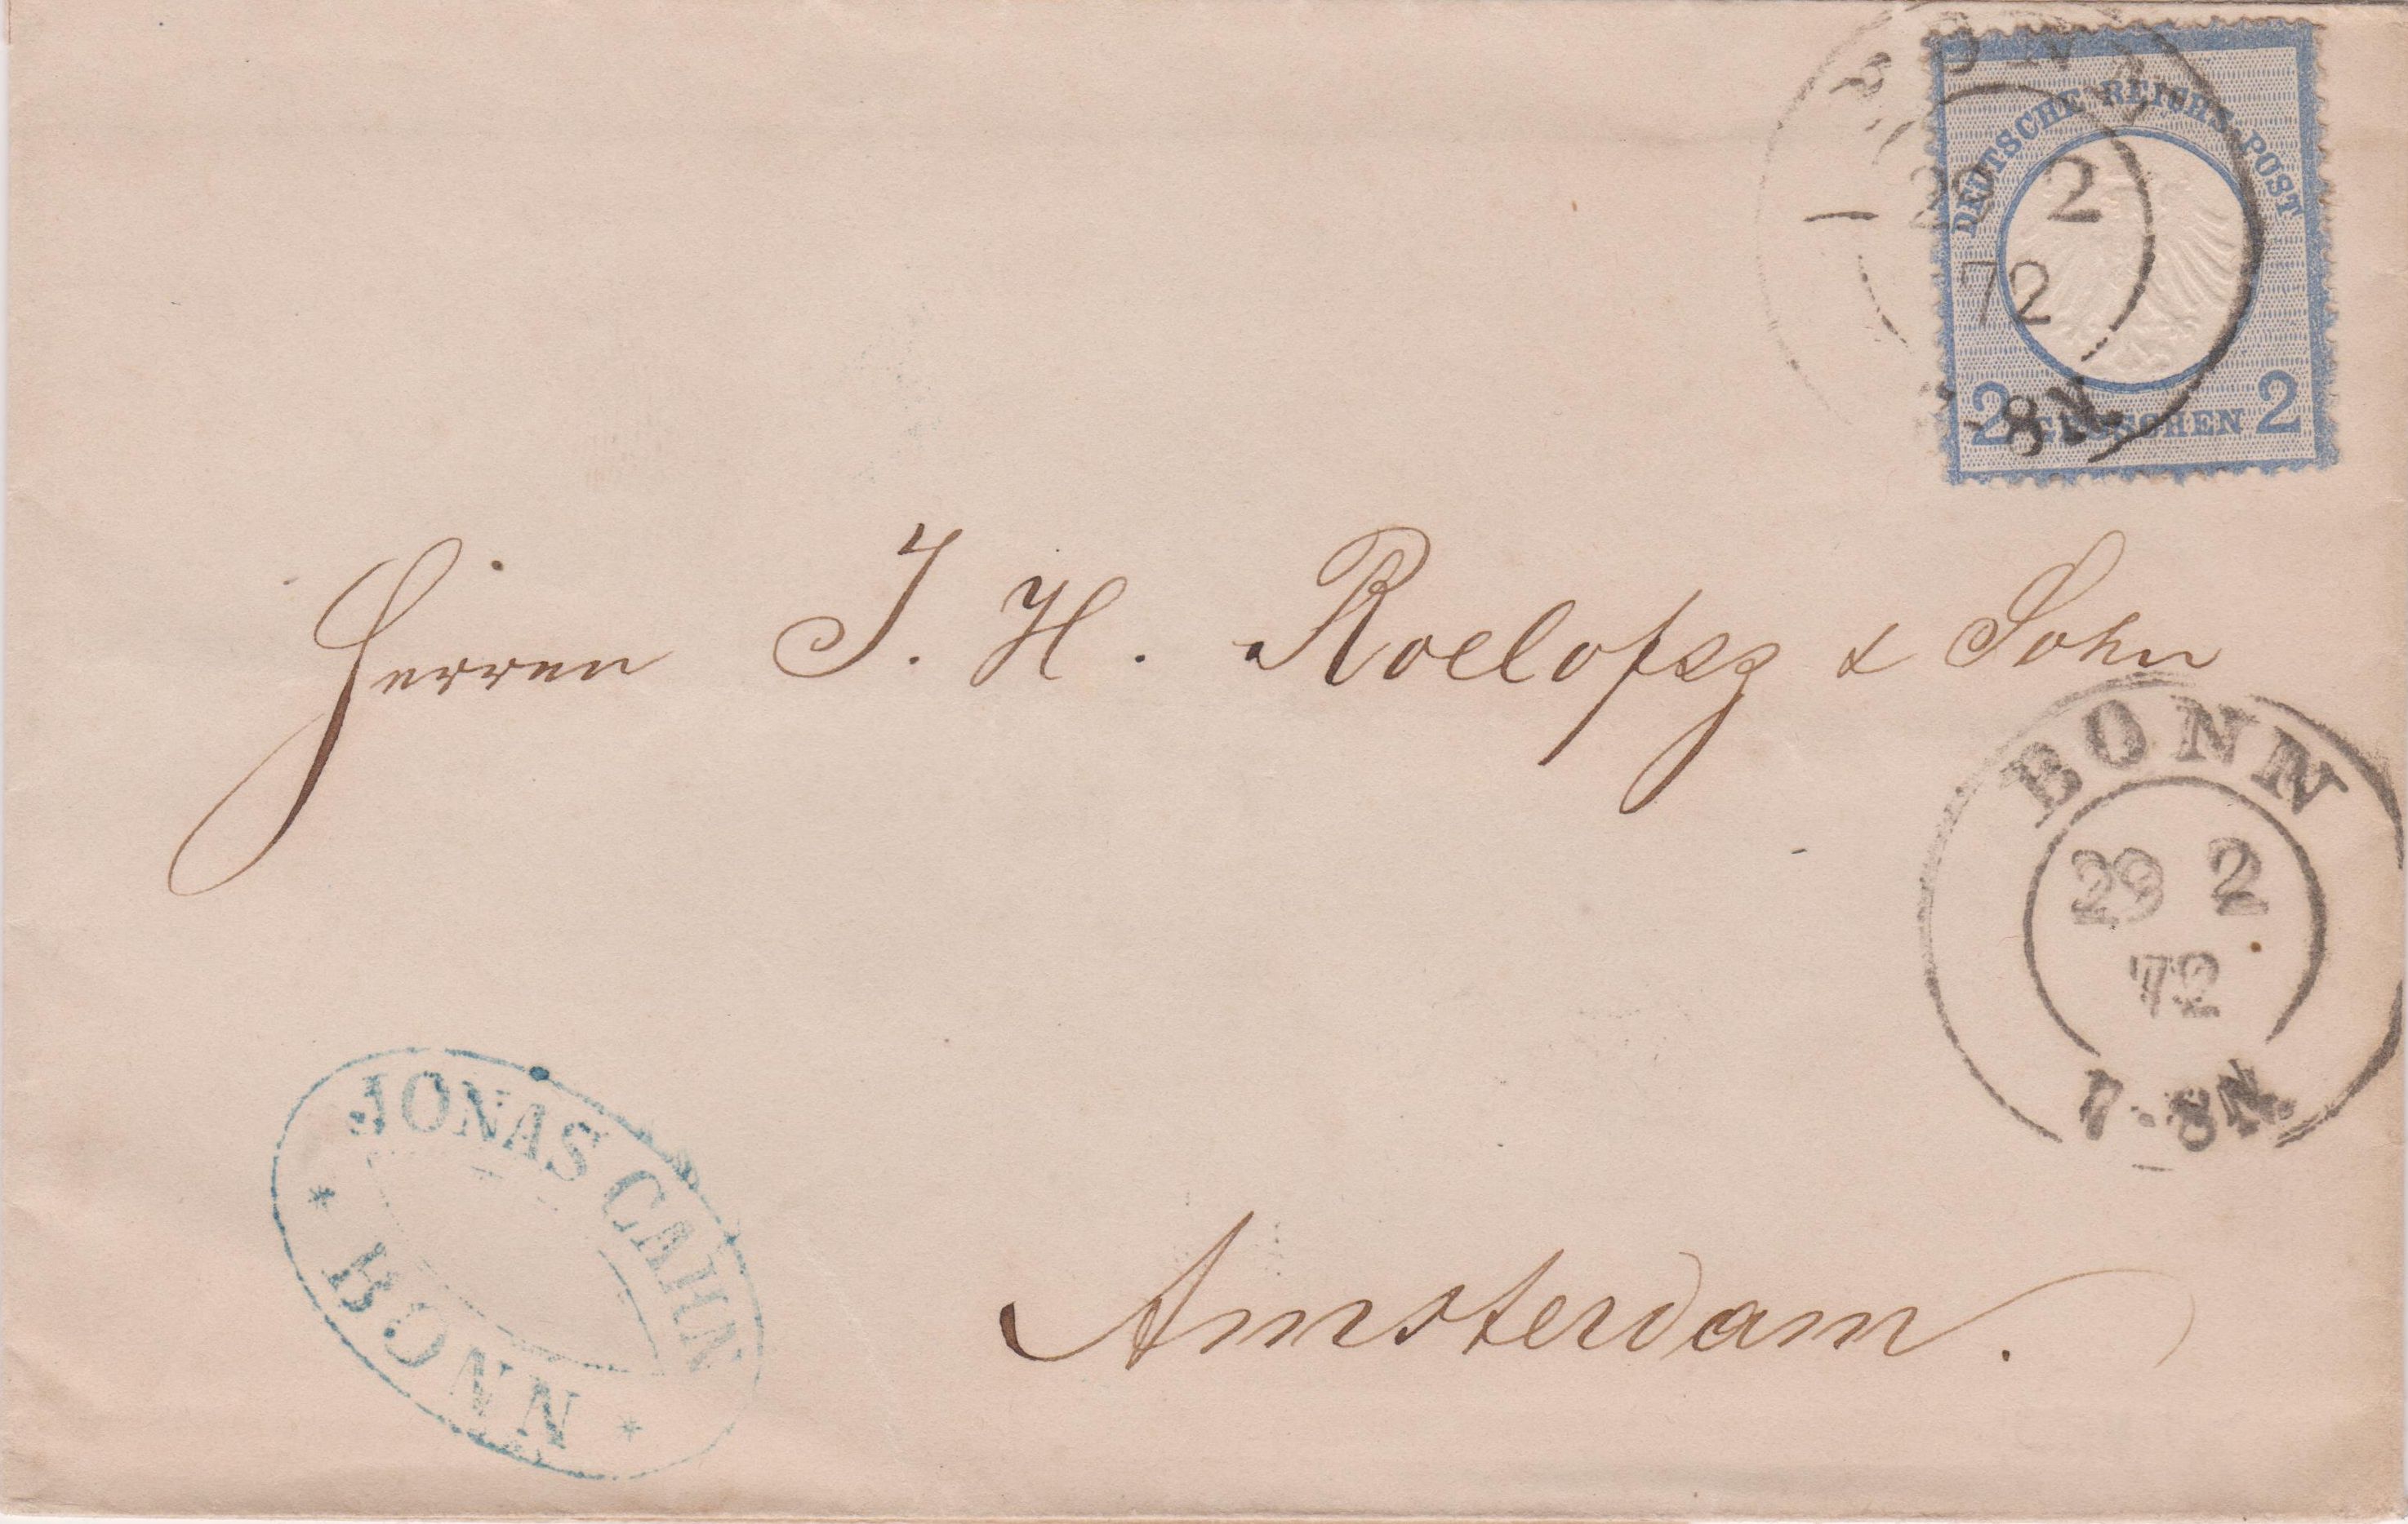 BONN
29 2
72
8N.
DEUTSCHE REICHS-POST
2 GROSCHEN 2
Herren J. H. Roelofsz & Sohn
BONN
29 2
72
7-8N.
JONAS CAHN
* BONN *
Amsterdam.